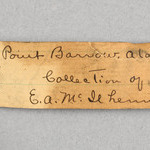 Point Barrow. Ala
Collection of
E.a. McIlhenn